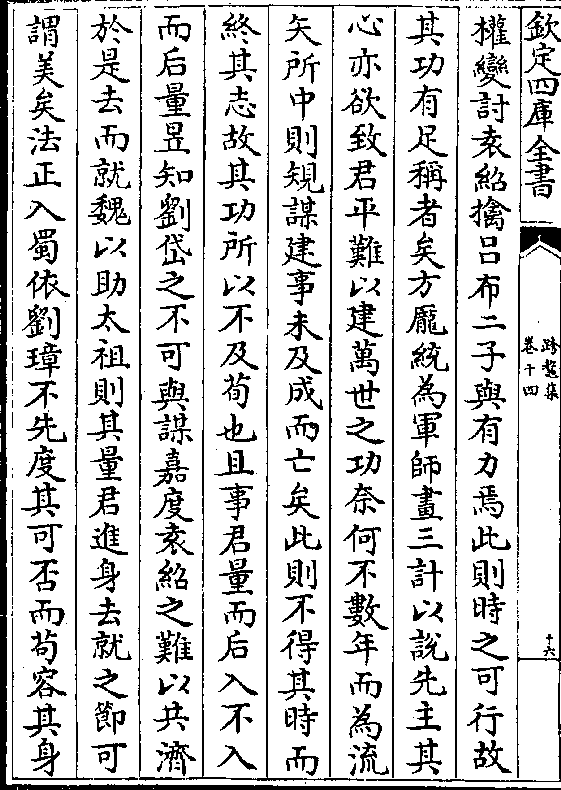 欽定四庫全書
跨鼇集
卷十四
十六
權變討袁紹擒吕布二子與有力焉此則時之可行故
其功有足稱者矣方龎統為軍師畫三計以說先主其
心亦欲致君平難以建萬世之功奈何不數年而為流
矢所中則規謀建事未及成而亡矣此則不得其時而
終其志故其功所以不及荀也且事君量而后入不入
而后量昱知劉岱之不可與謀嘉度袁紹之難以共濟
於是去而就魏以助太祖則其量君進身去就之節可
謂美矣法正入蜀依劉璋不先度其可否而苟容其身